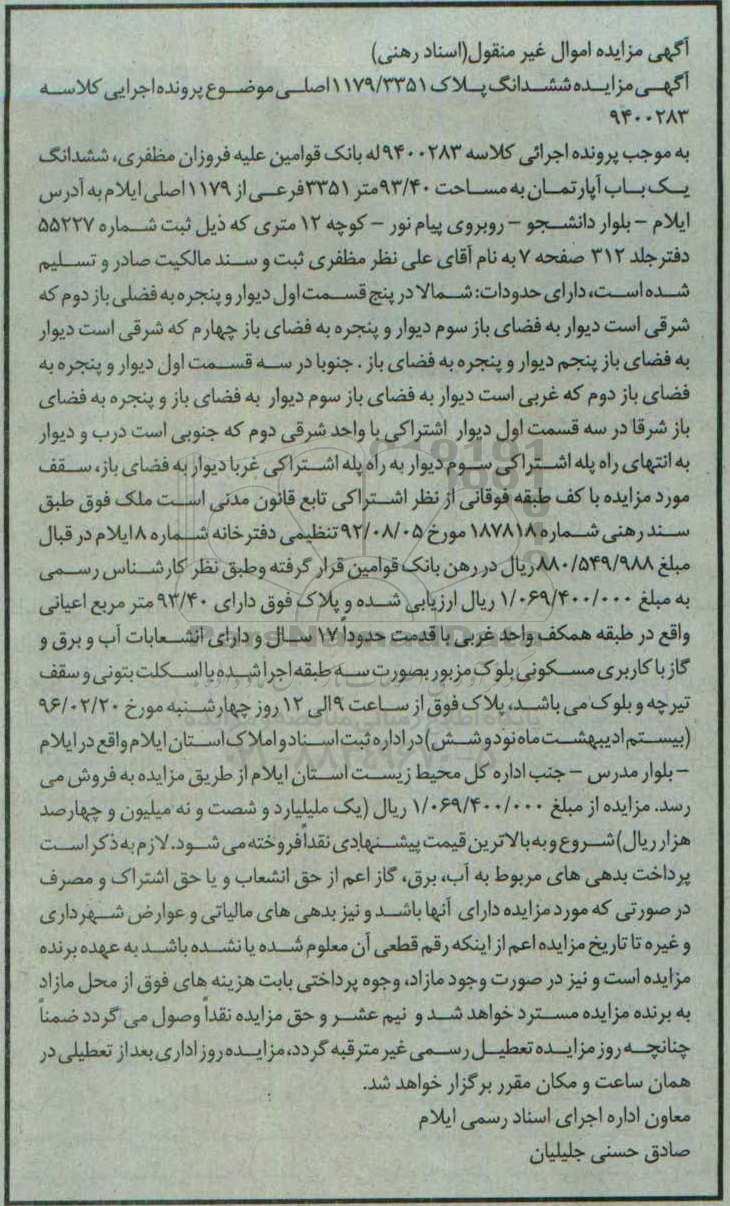 آگهی مزایده اموال غیر منقول(اسناد رهنی)
آگهـی مزایـده ششـدانگ پـلاک ۱۱۷۹/۳۳۵۱ اصلـی موضـوع پرونده اجرایی کلاسـه
۹۴۰۰۲۸۳
به موجب پرونده اجرائی کلاسه ۹۴۰۰۲۸۳ له بانک قوامین علیه فروزان مظفری، ششدانگ
یـک بـاب آپارتمـان به مسـاحت ۹۳/۴۰ متر ۳۳۵۱ فرعـی از ۱۱۷۹ اصلی ایلام به آدرس
ایلام – بلوار دانشـجو – روبروی پیام نور – کوچه ۱۲ متری که ذیل ثبت شـماره ۵۵۲۲۷
دفتر جلد ۳۱۲ صفحه ۷ به نام آقای علی نظر مظفری ثبت و سـند مالکیت صادر و تسـلیم
شـده اسـت، دارای حدودات: شـمالا در پنج قسـمت اول دیوار و پنجره به فضلی باز دوم که
شرقی است دیوار به فضای باز سوم دیوار و پنجره به فضای باز چهارم که شرقی است دیوار
به فضای باز پنجم دیوار و پنجره به فضای باز . جنوبا در سـه قسـمت اول دیوار و پنجره به
فضای باز دوم که غربی است دیوار به فضای باز سوم دیوار به فضای باز و پنجره به فضای
باز شرقا در سه قسمت اول دیوار اشتراکی با واحد شرقی دوم که جنوبی است درب و دیوار
به انتهای راه پله اشـتراکی سـوم دیوار به راه پله اشـتراکی غربا دیوار به فضای باز، سـقف
مورد مزایده با کف طبقه فوقانی از نظر اشـتراکی تابع قانون مدنی اسـت ملک فوق طبق
سـند رهنی شـماره ۱۸۷۸۱۸ مورخ ۹۲/۰۸/۰۵ تنظیمی دفترخانه شـماره ۸ ایلام در قبال
مبلغ ۸۸۰/۵۴۹/۹۸۸ ریال در رهن بانک قوامین قرار گرفته وطبق نظر کارشـناس رسـمی
به مبلغ ۱/۰۶۹/۴۰۰/۰۰۰ ریال ارزیابی شده و پلاک فوق دارای ۹۳/۴۰ متر مربع اعیانی
واقع در طبقه همکف واحد غربی با قدمت حدوداً ۱۷ سـال و دارای انشـعابات آب و برق و
گاز با کاربری مسـکونی بلوک مزبور بصورت سـه طبقه اجرا شـده با اسـکلت بتونی و سقف
تیرچه و بلوک می باشـد، پلاک فوق از سـاعت ۹ الی ۱۲ روز چهارشـنبه مورخ ۹۶/۰۲/۲۰
(بیسـتم اردیبهشـت ماه نود و شـش) در اداره ثبت اسـناد و املاک اسـتان ایلام واقع در ایلام
– بلوار مدرس – جنب اداره کل محیط زیسـت اسـتان ایلام از طریق مزایده به فروش می
رسد. مزایده از مبلغ ۱/۰۶۹/۴۰۰/۰۰۰ ریال (یک ملیلیارد و شصت و نه میلیون و چهارصد
هزار ریال) شـروع و به بالاترین قیمت پیشـنهادی نقداً فروخته می شـود. لازم به ذکر اسـت
پرداخت بدهی های مربوط به آب، برق، گاز اعم از حق انشعاب و یا حق اشتراک و مصرف
در صورتی که مورد مزایده دارای آنها باشـد و نیز بدهی های مالیاتی و عوارض شـهرداری
و غیره تا تاریخ مزایده اعم از اینکه رقم قطعی آن معلوم شـده یا نشـده باشـد به عهده برنده
مزایده است و نیز در صورت وجود مازاد، وجوه پرداختی بابت هزینه های فوق از محل مازاد
به برنده مزایده مسـترد خواهد شـد و نیم عشـر و حق مزایده نقداً وصول می گردد ضمناً
چنانچـه روز مزایـده تعطیـل رسـمی غیر مترقبه گردد، مزایـده روز اداری بعد از تعطیلی در
همان ساعت و مکان مقرر برگزار خواهد شد.
معاون اداره اجرای اسناد رسمی ایلام
صادق حسنی جلیلیان